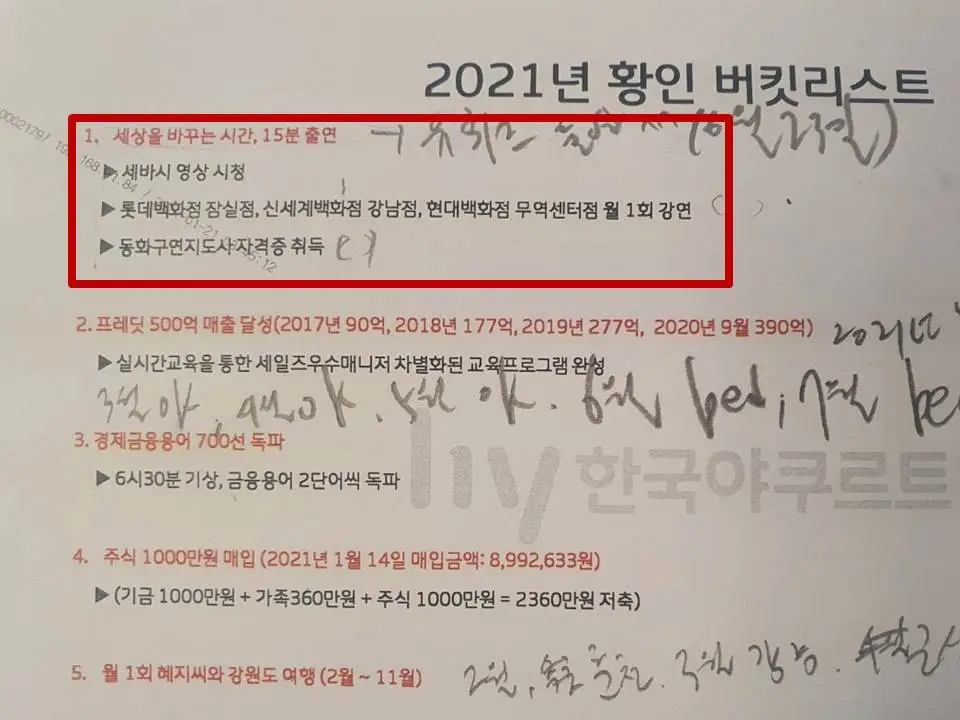 2021년 황인 버킷리스트
1. 세상을 바꾸는 시간, 15분 출연 → 유퀴즈 (10월 23일)
▶세바시 영상 시청
▶롯데백화점 잠실점, 신세계백화점 강남점, 현대백화점 무역센터점 월 1회 강연 ( )
▶동화구연지도사 자격증 취득 ( )
2. 프레딧 500억 매출 달성(2017년 90억, 2018년 177억, 2019년 277억, 2020년 9월 390억) 2021년
▶실시간교육을 통한 세일즈우수매니저 차별화된 교육프로그램 완성
3월 ok, 4월 ok, 5월 ok, 6월 bed, 7월
3. 경제금융용어 700선 독파
▶6시30분 기상, 금융용어 2단어씩 독파
hy 한국야쿠르트
4. 주식 1000만원 매입 (2021년 1월 14일 매입금액: 8,992,633원)
▶(기금 1000만원 + 가족360만원 + 주식 1000만원 = 2360만원 저축)
5. 월 1회 혜지씨와 강원도 여행 (2월 ~ 11월) 2월,